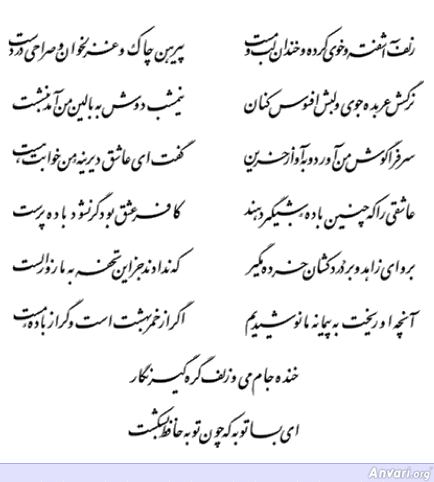 زلف آشفته و خوی کرده و خندان لب و مست پیرهن چاک و غزلخوان و صراحی در دست
نرگسش عربده جوی و لبش افسوس کنان نیمشب دوش به بالین من آمد بنشست
سر فرا گوش من آورد و به آواز حزین گفت ای عاشق دیرینه من خوابت هست
عاشقی را که چنین باده شبگیر دهند کافر عشق بود گر نشود باده پرست
برو ای زاهد و بر درد کشان خرده مگیر که ندادند جز این تحفه به ما روز الست
آنچه او ریخت به پیمانه ما نوشیدیم اگر از خمر بهشت است و گر از باده مست
خنده جام می و زلف گره گیر نگار
ای بسا توبه که چون توبه حافظ بشکست
Anvari.org